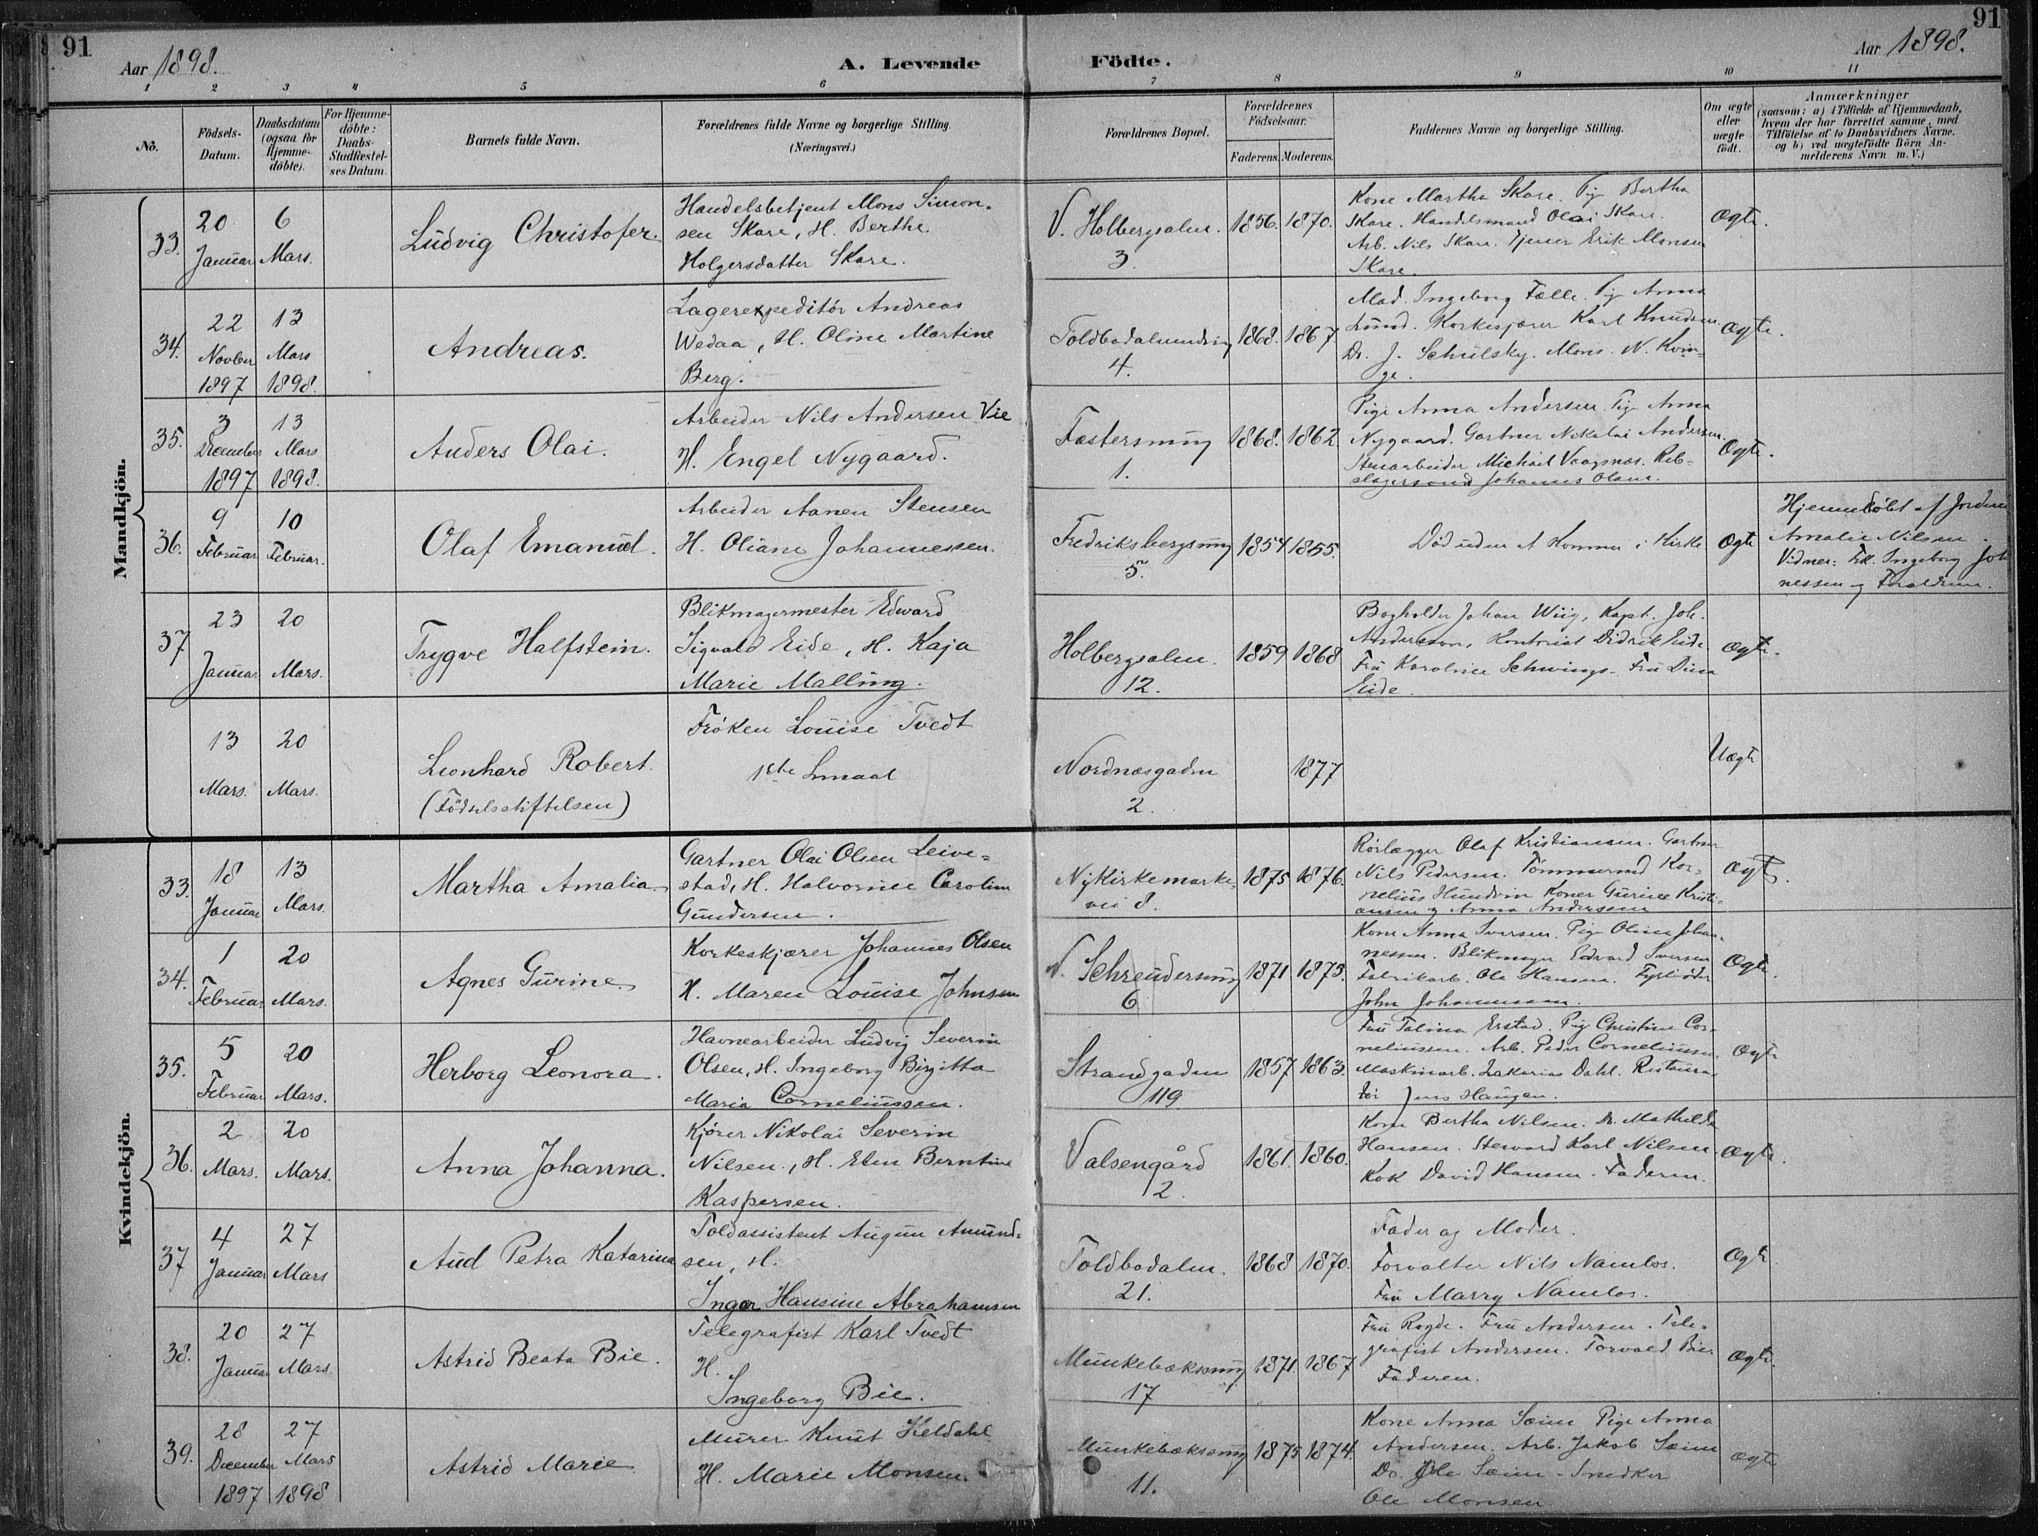 91
Aar 1898.
A. Levende Födte.
Aar 1898.
91
1 2 3 4 5 6 7 8 9 10 11
No.
Födsels-Datum.
Daabsdatum (ogsaa for Hjemme-döbte).
For Hjemme-döbte: Daabs-Stadfæstel-ses Datum.
Barnets fulde Navn.
Forældrenes fulde Navne og borgerlige Stilling. (Næringsvei.)
Forældrenes Bopæl.
Forældrenes Födselsaar.
Faderens. Moderens.
Faddernes Navne og borgerlige Stilling.
Om ægte eller uægte födt.
Anmærkninger
(saasom: a) i Tilfælde af Hjemmedaab, hvem der har forrettet samme, med Tilföielse af to Daabsvidners Navne. og b) ved uægtefödte Börn An-melderens Navn m. V.)
Mandkjön.
33. 20 Januar 6 Mars. Ludvig Christofer.
Handelsbetjent Mons Simon-
sen Skare, H. Berthe
Holgersdatter Skare.
V. Holbergsalm. 3. 1856. 1870.
Kone Martha Skare. Pige Bertha
Skare. Handelsmand Olai Skare.
Arb. Nils Skare. Tjener Erik Monsen
Skare.
Ægte.
34. 22 Novber 1897 13 Mars 1898. Andreas.
Lagerexpeditör Andreas
Wedaa, H. Oline Martine
Berg.
Toldbodalmndvg 4. 1868. 1867.
Mad. Ingeborg Fælle. Pige Anna
Lund. Korkeskjærer Karl Knudsen.
Dr. J. Schulsky. Mons. N. Kvin-
ge.
Ægte.
35. 3 December 1897 13 Mars 1898. Anders Olai.
Arbeider Nils Andersen Vie
H. Engel Nygaard.
Fæstersmug 1. 1868. 1862
Pige Anna Andersen. Pige Anna
Nygaard. Gartner Nikolai Andersen.
Stenarbeider Michael Vaagsnæs. Reb-
slagersvend Johannes Olsen.
Ægte.
36. 9 Februar 10 Februar. Olaf Emanuel.
Arbeider Aanen Stensen
H. Oliane Johannessen.
Fredriksbergsmug 5. 1854 1855.
Död uden at komme i Kirke
Ægte
Hjemmedöbt af Jordem
Amalie Nilsen.
Vidner: Frk. Ingeborg Joh
nessen og Forældrene.
37 23 Januar 20 Mars. Trygve Halfstein.
Blikmagermester Edward
Sigvald Eide, H. Kaja
Marie Malling.
Holbergsalm. 12. 1859 1868
Bogholder Johan Wiig, Kapt. Joh.
Anderson, Kontorist Didrik Eide.
Fru Karoline Schwings. Fru Dina
Eide.
Ægte.
13 Mars. 20 Mars. Leonhard Robert. (Födselsstiftelsen)
Fröken Louise Tvedt
1ste Lmaal
Nordnæsgaden 2. 1877
Uægte
Kvindekjön.
33. 18 Januar 13 Mars. Martha Amalia.
Gartner Olai Olsen Leive-
stad, H. Halvorine Caroline
Gundersen.
Nykirkemarke
vei 8. 1875 1876.
Rörlægger Olaf Kristiansen. Gartner
Nils Pedersen. Tömmermd Kor-
nelius Hundvin Koner Gurine Kristi-
ansen og Anna Anderssen
Ægte.
34. 1 Februar 20 Mars. Agnes Gurine.
Korkeskjærer Johannes Olsen
H. Maren Louise Johnsen
V. Schreudersmug 6 1871 1875.
Kone Anna Iversen. Pige Oline Johan-
nessen. Blikmager Edvard Iversen
Fabrikarb. Ole Hansen. Fyrböder
John Johannessen.
Ægte.
35. 5 Februar 20 Mars. Herborg Leonora.
Havnearbeider Ludvig Severin
Olsen, H. Ingeborg Birgitta
Maria Corneliussen.
Strandgaden 119 1857 1863.
Fru Talina Erstad. Pige Christine Cor-
neliussen. Arb. Peder Corneliussen.
Maskinarb. Zakarias Dahl. Restaura-
tör Jens Haugen.
Ægte
36. 2 Mars. 20 Mars. Anna Johanna.
Kjörer Nikolai Severin
Nilsen, H. Elen Berntine
Kaspersen.
Valsengård 2. 1861. 1860.
Kone Bertha Nilsen. Do. Mathilda
Hansen. Steward Karl Nilsen.
Kok David Hansen. Faderen.
Ægte.
37 4 Januar 27 Mars Aud Petra Katarina
Toldassistent August Amund-
sen, H.
Inger Hansine Abrahamsen
Toldbodalm. 21. 1868 1870.
Fader og Moder.
Forvalter Nils Namlos.
Fru Marry Namlos.
Ægte
38. 20 Januar 27 Mars. Astrid Beata Bie.
Telegrafist Karl Tvedt
H.
Ingeborg Bie.
Munkebæksmug 17 1871. 1867
Fru Rogde. Fru Andersen. Tele-
grafist Andersen. Torvald Bie.
Faderen.
Ægte.
39. 28 December 1897 27 Mars 1898 Astrid Marie
Murer Knut Heldahl
H. Marie Monsen.
Munkebæksmug 11. 1875 1874.
Kone Anna Sæim Pige Anna
Andersen. Arb. Jakob Sæim
Do. Ole Sæim - Snedker
Ole Monsen
Ægte